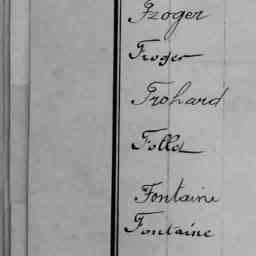 Froger
Froger
Frohard
Folla
Fontaine
Fontaine